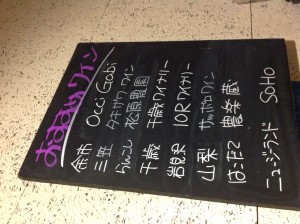 おすすめワイン
余市 Occi Gabi
三笠 タキザワワイン
らんこし 松原農園
千歳 千歳ワイナリー
岩見沢 10Rワイナリー
山梨 サッポロワイン
はこだて 農楽蔵
ニュージーランド SOHO